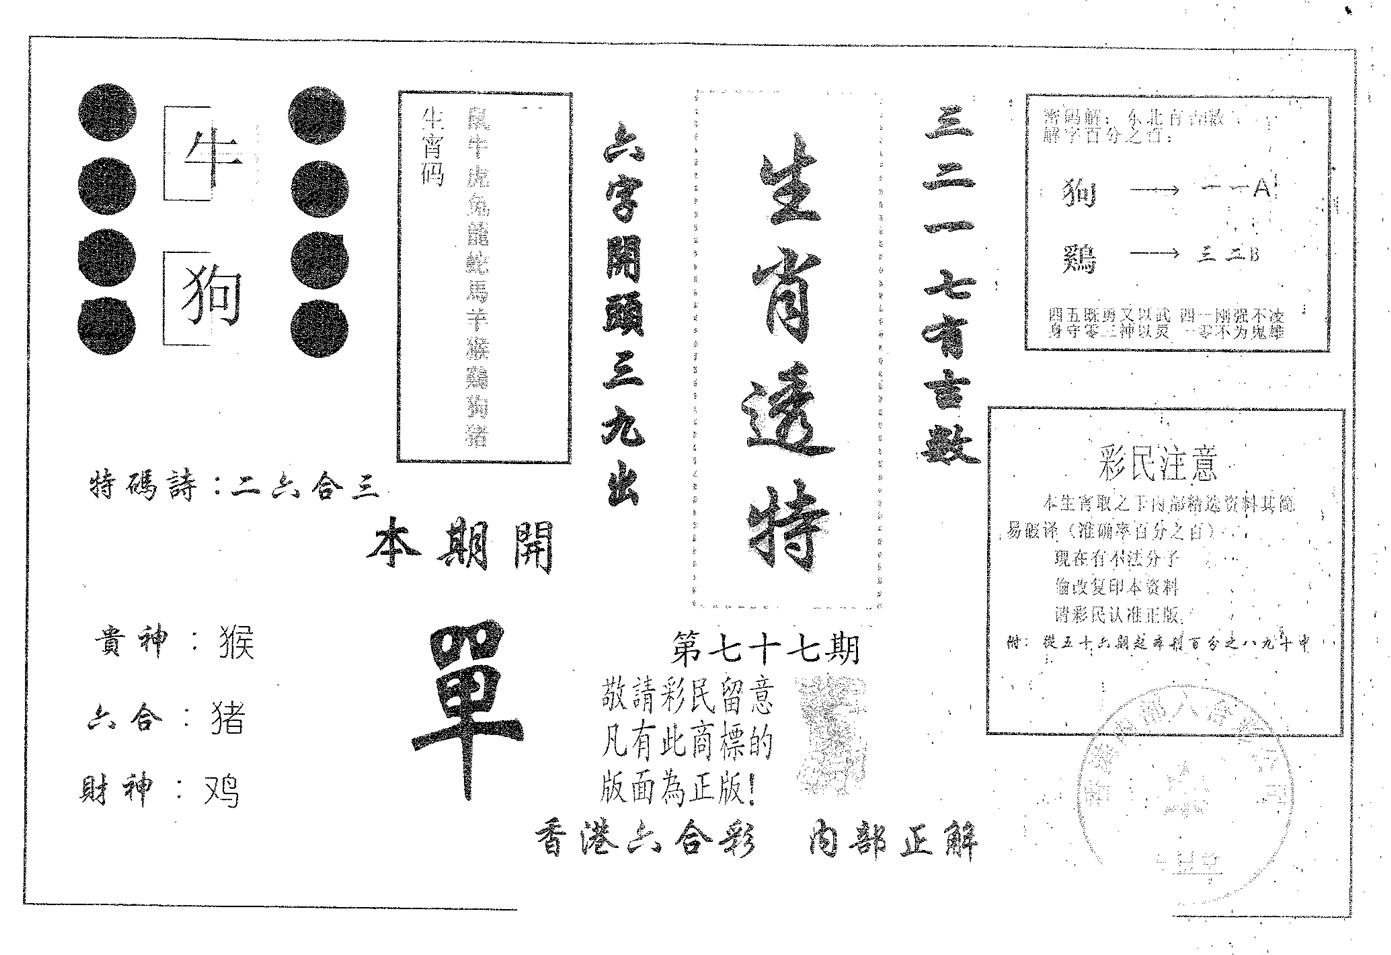 牛
狗
生宵码
鼠牛虎兔龍蛇馬羊猴鷄狗猪
六字開頭三九出
生肖透特
三二一七有吉数
密码解：东北有吉数
解字百分之百：
狗 → 一一A
鷄 → 三二B
四五既勇又以武 四一刚强不凌
身守零三神以灵 一零不为鬼雄
彩民注意
本生宵取之于内部精选资料其简
易破译（准确率百分之百）
现在有不法分子
偷改复印本资料
请彩民认准正版
附：從五十六期起
百分之八九十中
特碼詩：二六合三
本期開
單
貴神：猴
六合：猪
財神：鸡
第七十七期
敬請彩民留意
凡有此商標的
版面為正版！
香港六合彩 内部正解